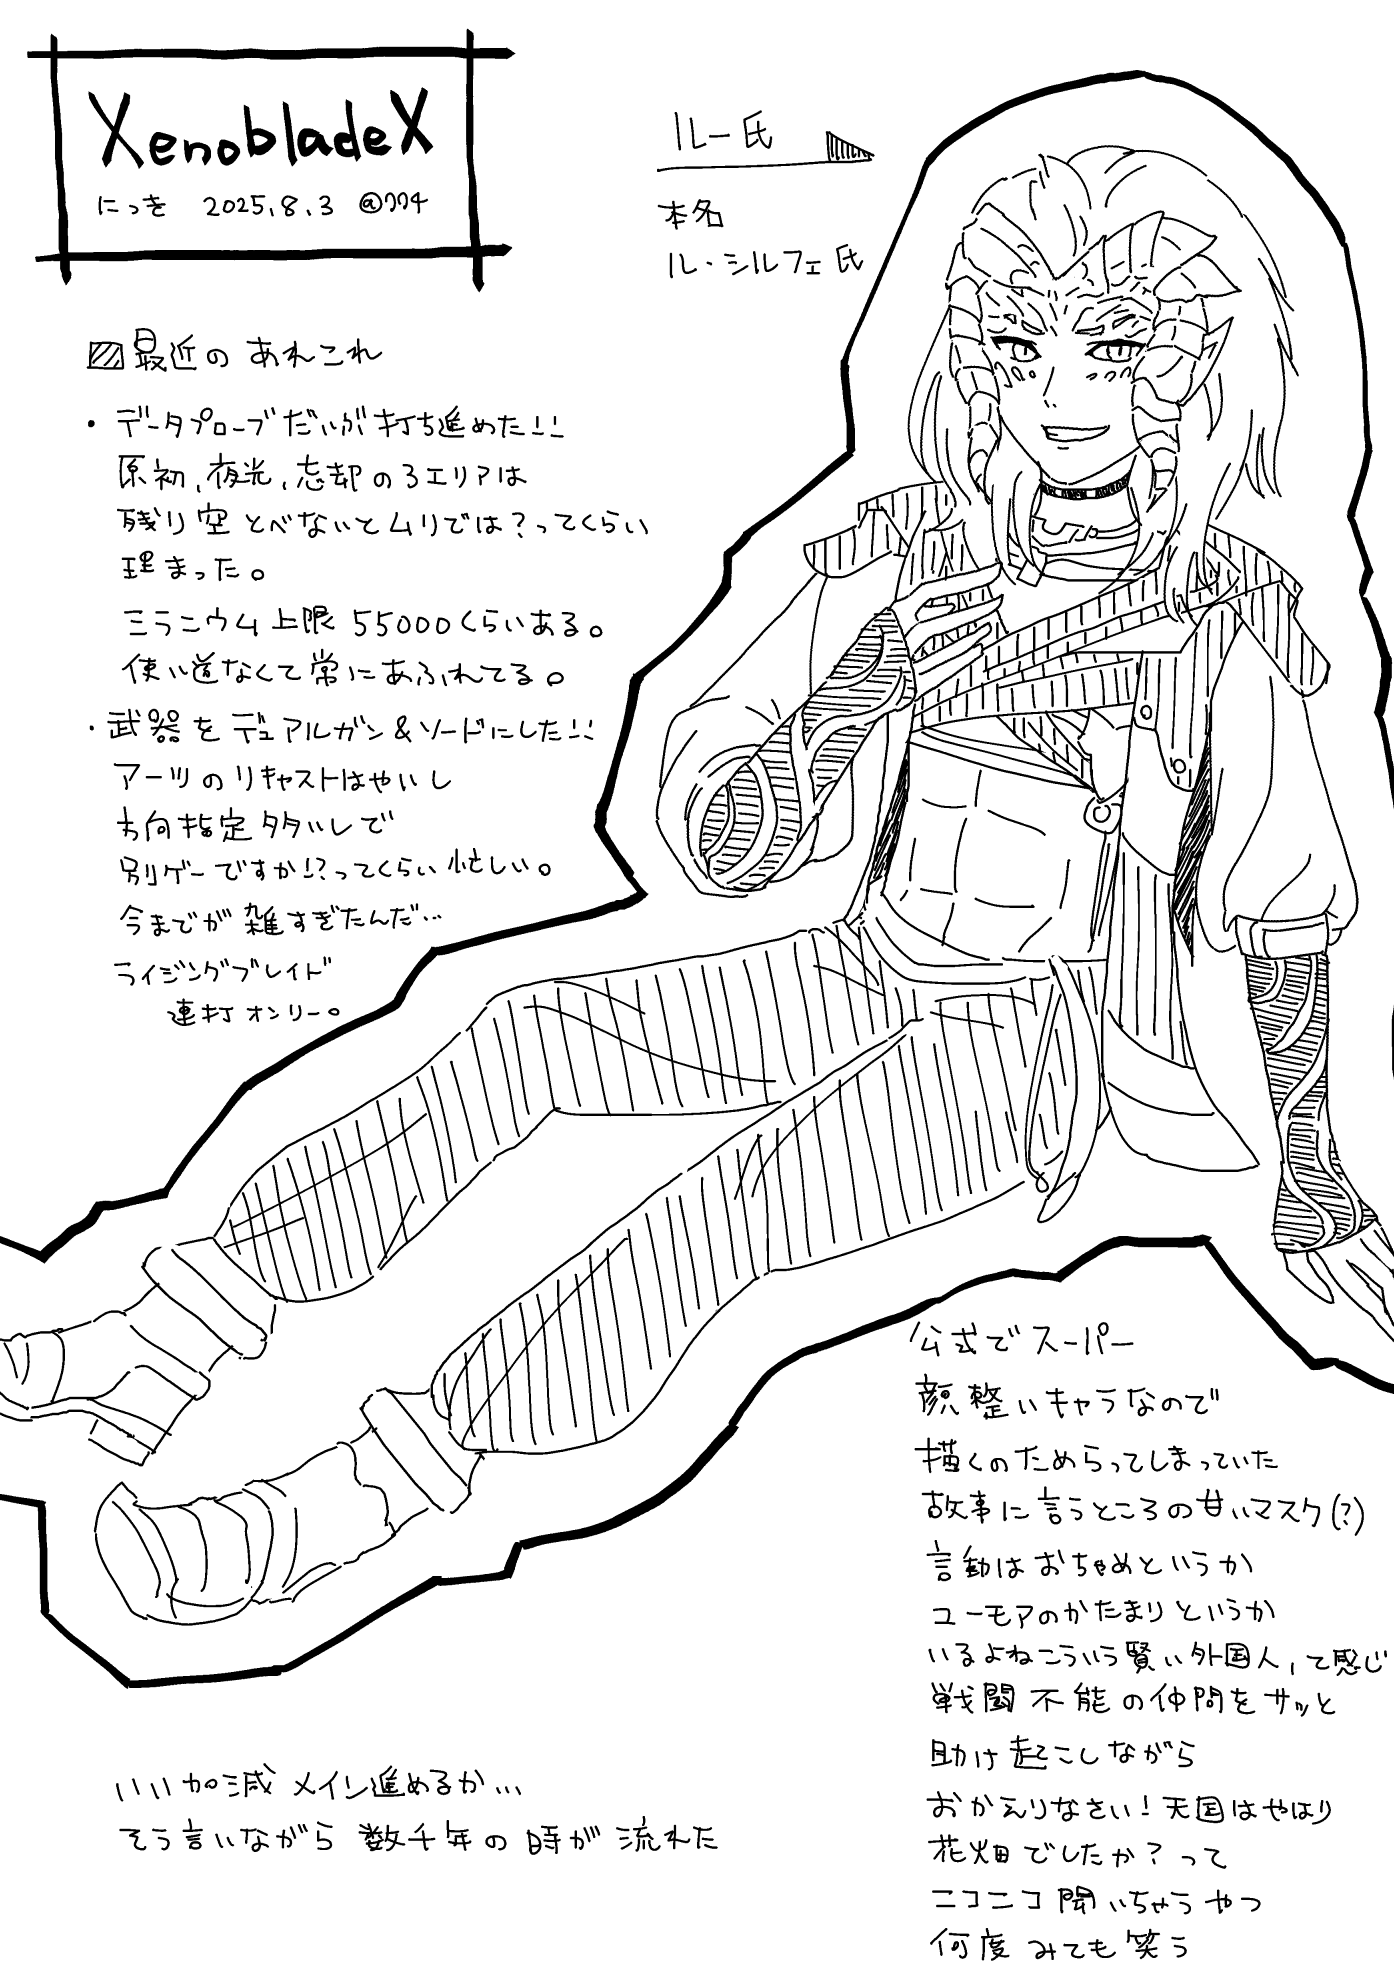 XenobladeX
にっき 2025.8.3
ルー氏
本名
ル・シルフェ氏
最近の あれこれ
・データプローブだいぶ打ち進めた!!
原初、夜光、忘却の3エリアは
残り空とべないとムリでは?ってくらい
埋まった。
ミラニウム上限 55000くらいある。
使い道なくて常にあふれてる。
・武器をデュアルガン&ソードにした!!
アーツのリキャストはやいし
方向指定タタいしで
別ゲーですか!?ってくらい忙しい。
今までが雑すぎたんだ…
ライジングブレイド
連打オンリー。
公式でスーパー
顔整いキャラなので
描くのためらってしまっていた
故事に言うところの甘いマスク(?)
言動はおちゃめというか
ユーモアのかたまりというか
いるよねこういう賢い外国人、て感じ
戦闘不能の仲間をサッと
助け起こしながら
おかえりなさい!天国はやはり
花畑でしたか?って
ニコニコ聞いちゃうやつ
何度みても笑う
いい加減メイン進めるか…
そう言いながら 数千年の時が流れた